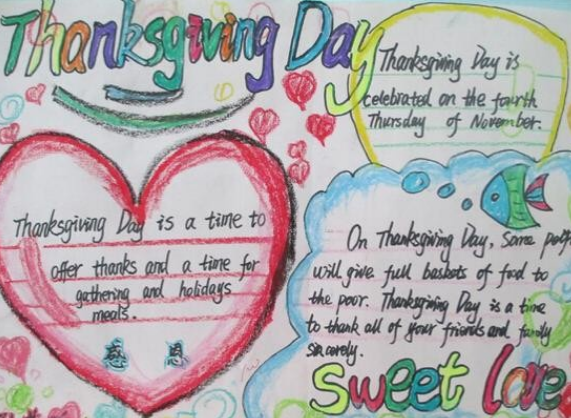 Thanksgiving Day
Thanksgiving Day is
celebrated on the fourth
Thursday of November.
Thanksgiving Day is a time to
offer thanks and a time for
gathering and holidays
meals.
感 恩
On Thanksgiving Day, some
will give full baskets of food to
the poor. Thanksgiving Day is a time
to thank all of your friends and family
sincerely.
sweet love